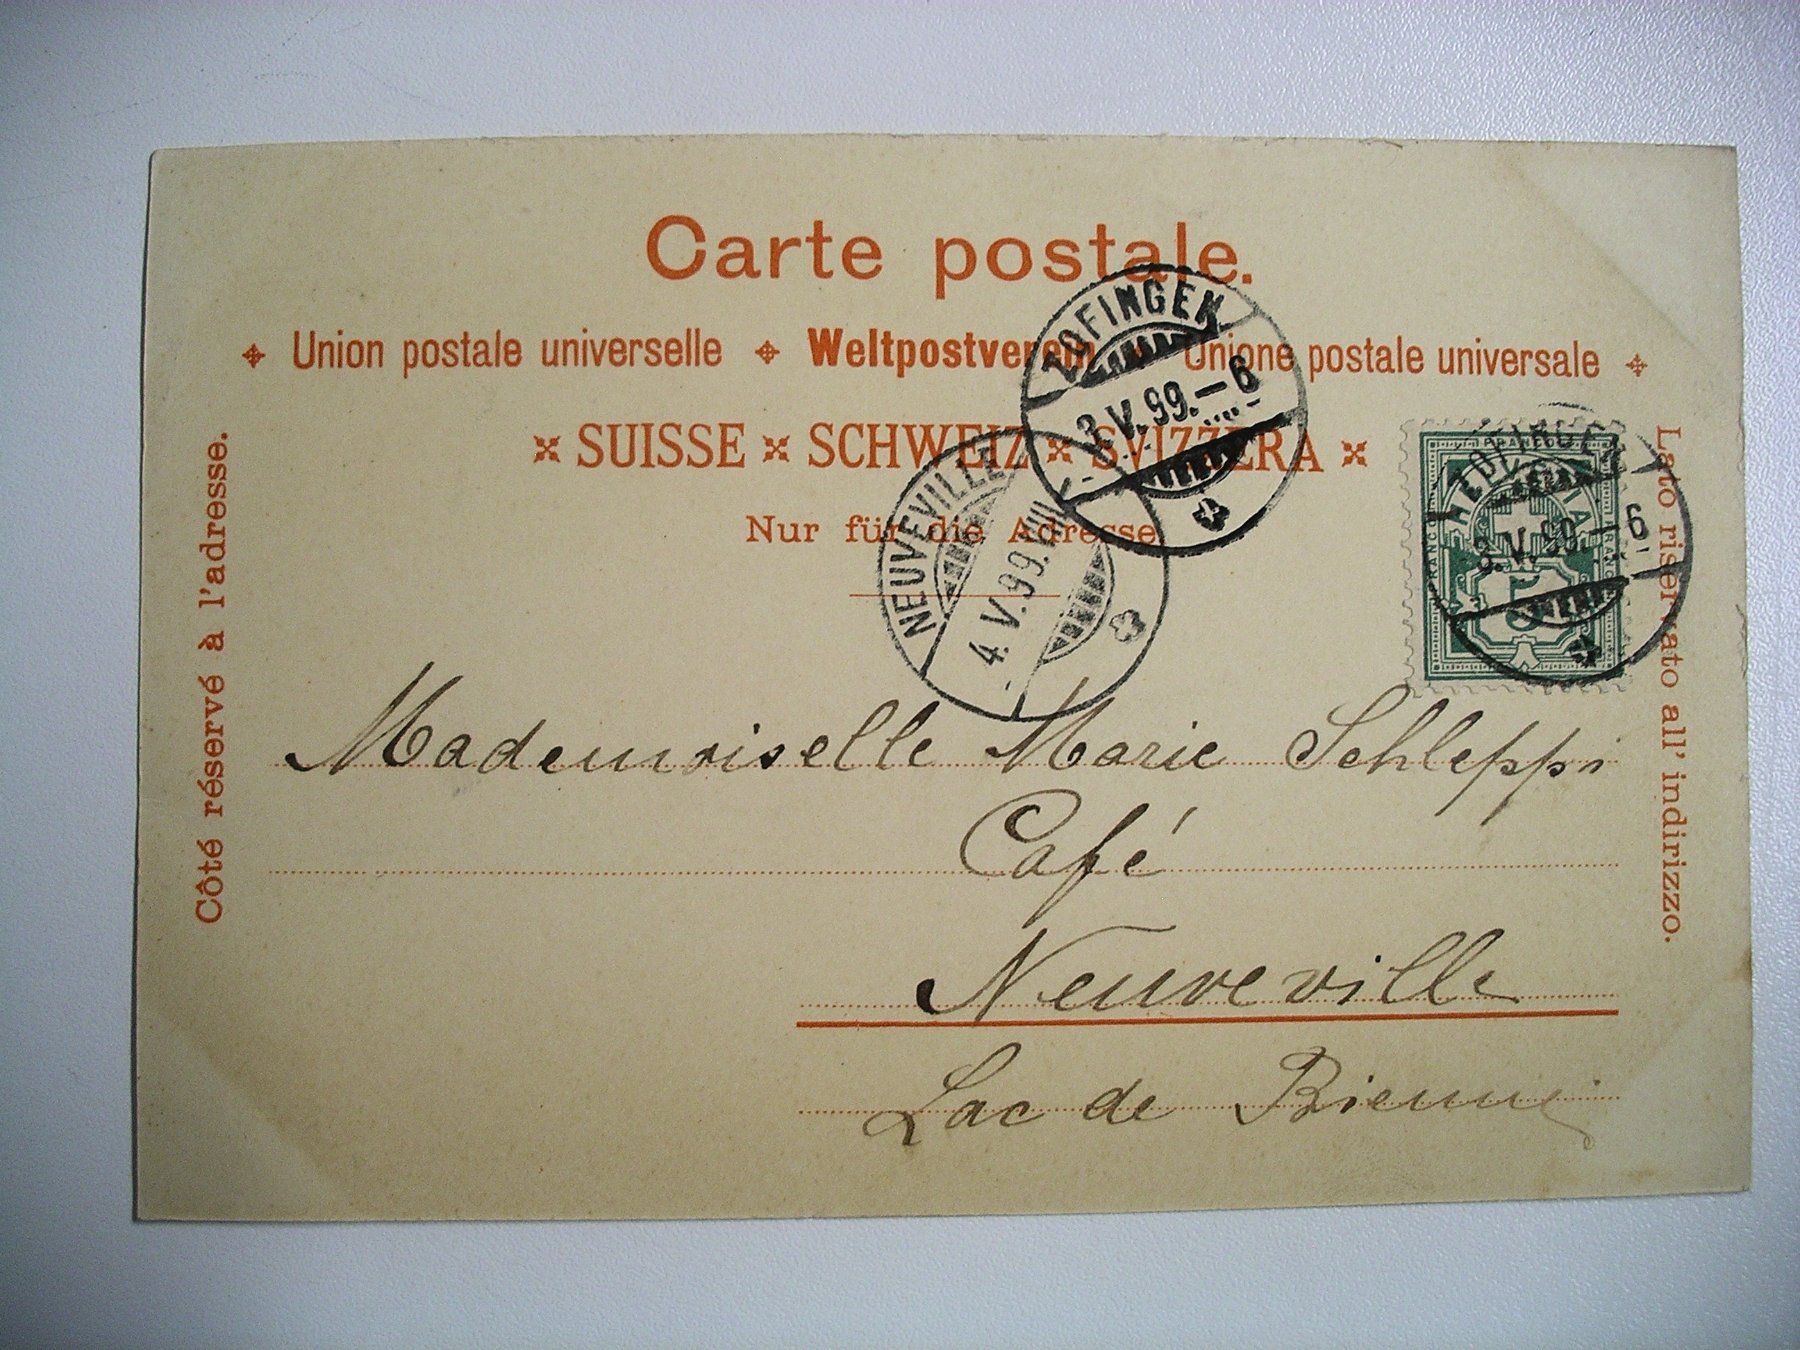 Carte postale.
Union postale universelle Weltpostverein Unione postale universale
SUISSE SCHWEIZ SVIZZERA
Nur für die Adresse
Côté réservé à l'adresse.
Lato riservato all' indirizzo.
ZOFINGEN
3.V.99.-6
NEUVEVILLE
4.V.99.VIII
ZOFINGEN
3.V.99.-6
FRANCO
HELVETIA
5
Mademoiselle Marie Schleppi
Café
Neuveville
Lac de Bienne